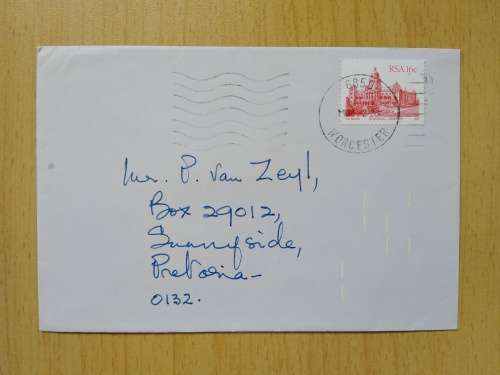 RSA 16c
6850
WORCESTER
Mr. P. van Zeyl,
Box 29012,
Sunnyside,
Pretoria-
0132.